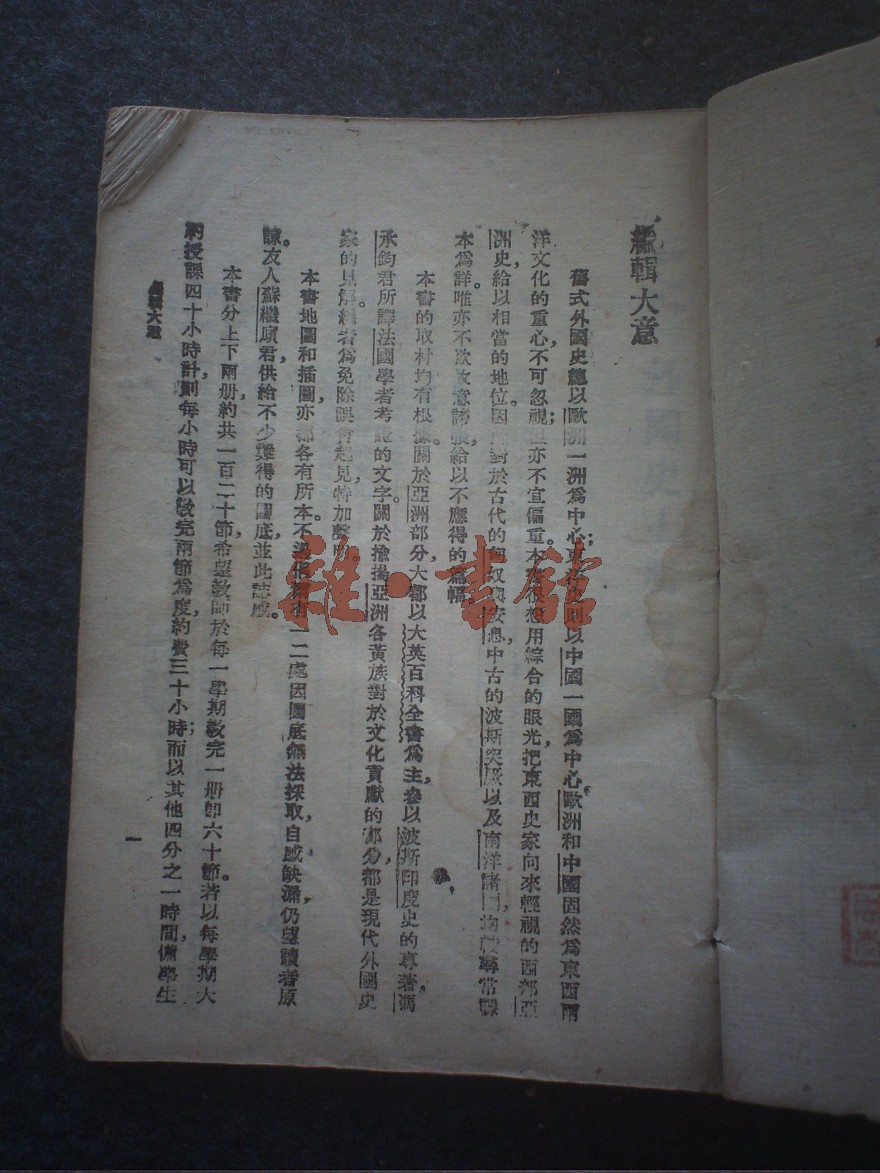 編輯大意
舊式外國史總以歐洲一洲為中心;東洋史則以中國一國為中心。歐洲和中國固然為東西兩
洋文化的重心,不可忽視;但亦不宜偏重。本書很想用綜合的眼光,把東西史家向來輕視的西部亞
洲史給以相當的地位。因此對於古代的匈奴與安息,中古的波斯突厥以及南洋諸國,均較尋常課
本為詳。唯亦不欲故意誇張,給以不應得的篇幅。
本書的取材均有根據。關於亞洲部分,大都以大英百科全書為主,參以波斯印度史的專著,馮
承鈞君所譯法國學者考證的文字。關於推揚亞洲各黃族對於文化貢獻的部分,都是現代外國史
家的見解。編者為免除誤會起見,特加聲明。
本書地圖和插圖,亦都各有所本。不過有一二處因圖底無法採取,自感缺漏,仍望讀者原
諒。友人蘇繼廎君供給不少難得的圖底,並此誌感。
本書分上下兩册,約共一百二十節,希望教師於每一學期教完一册,即六十節。若以每學期大
約授課四十小時計劃,每小時可以教完兩節為度,約費三十小時;而以其他四分之一時間,備學生
編輯大意
一
雜·書館